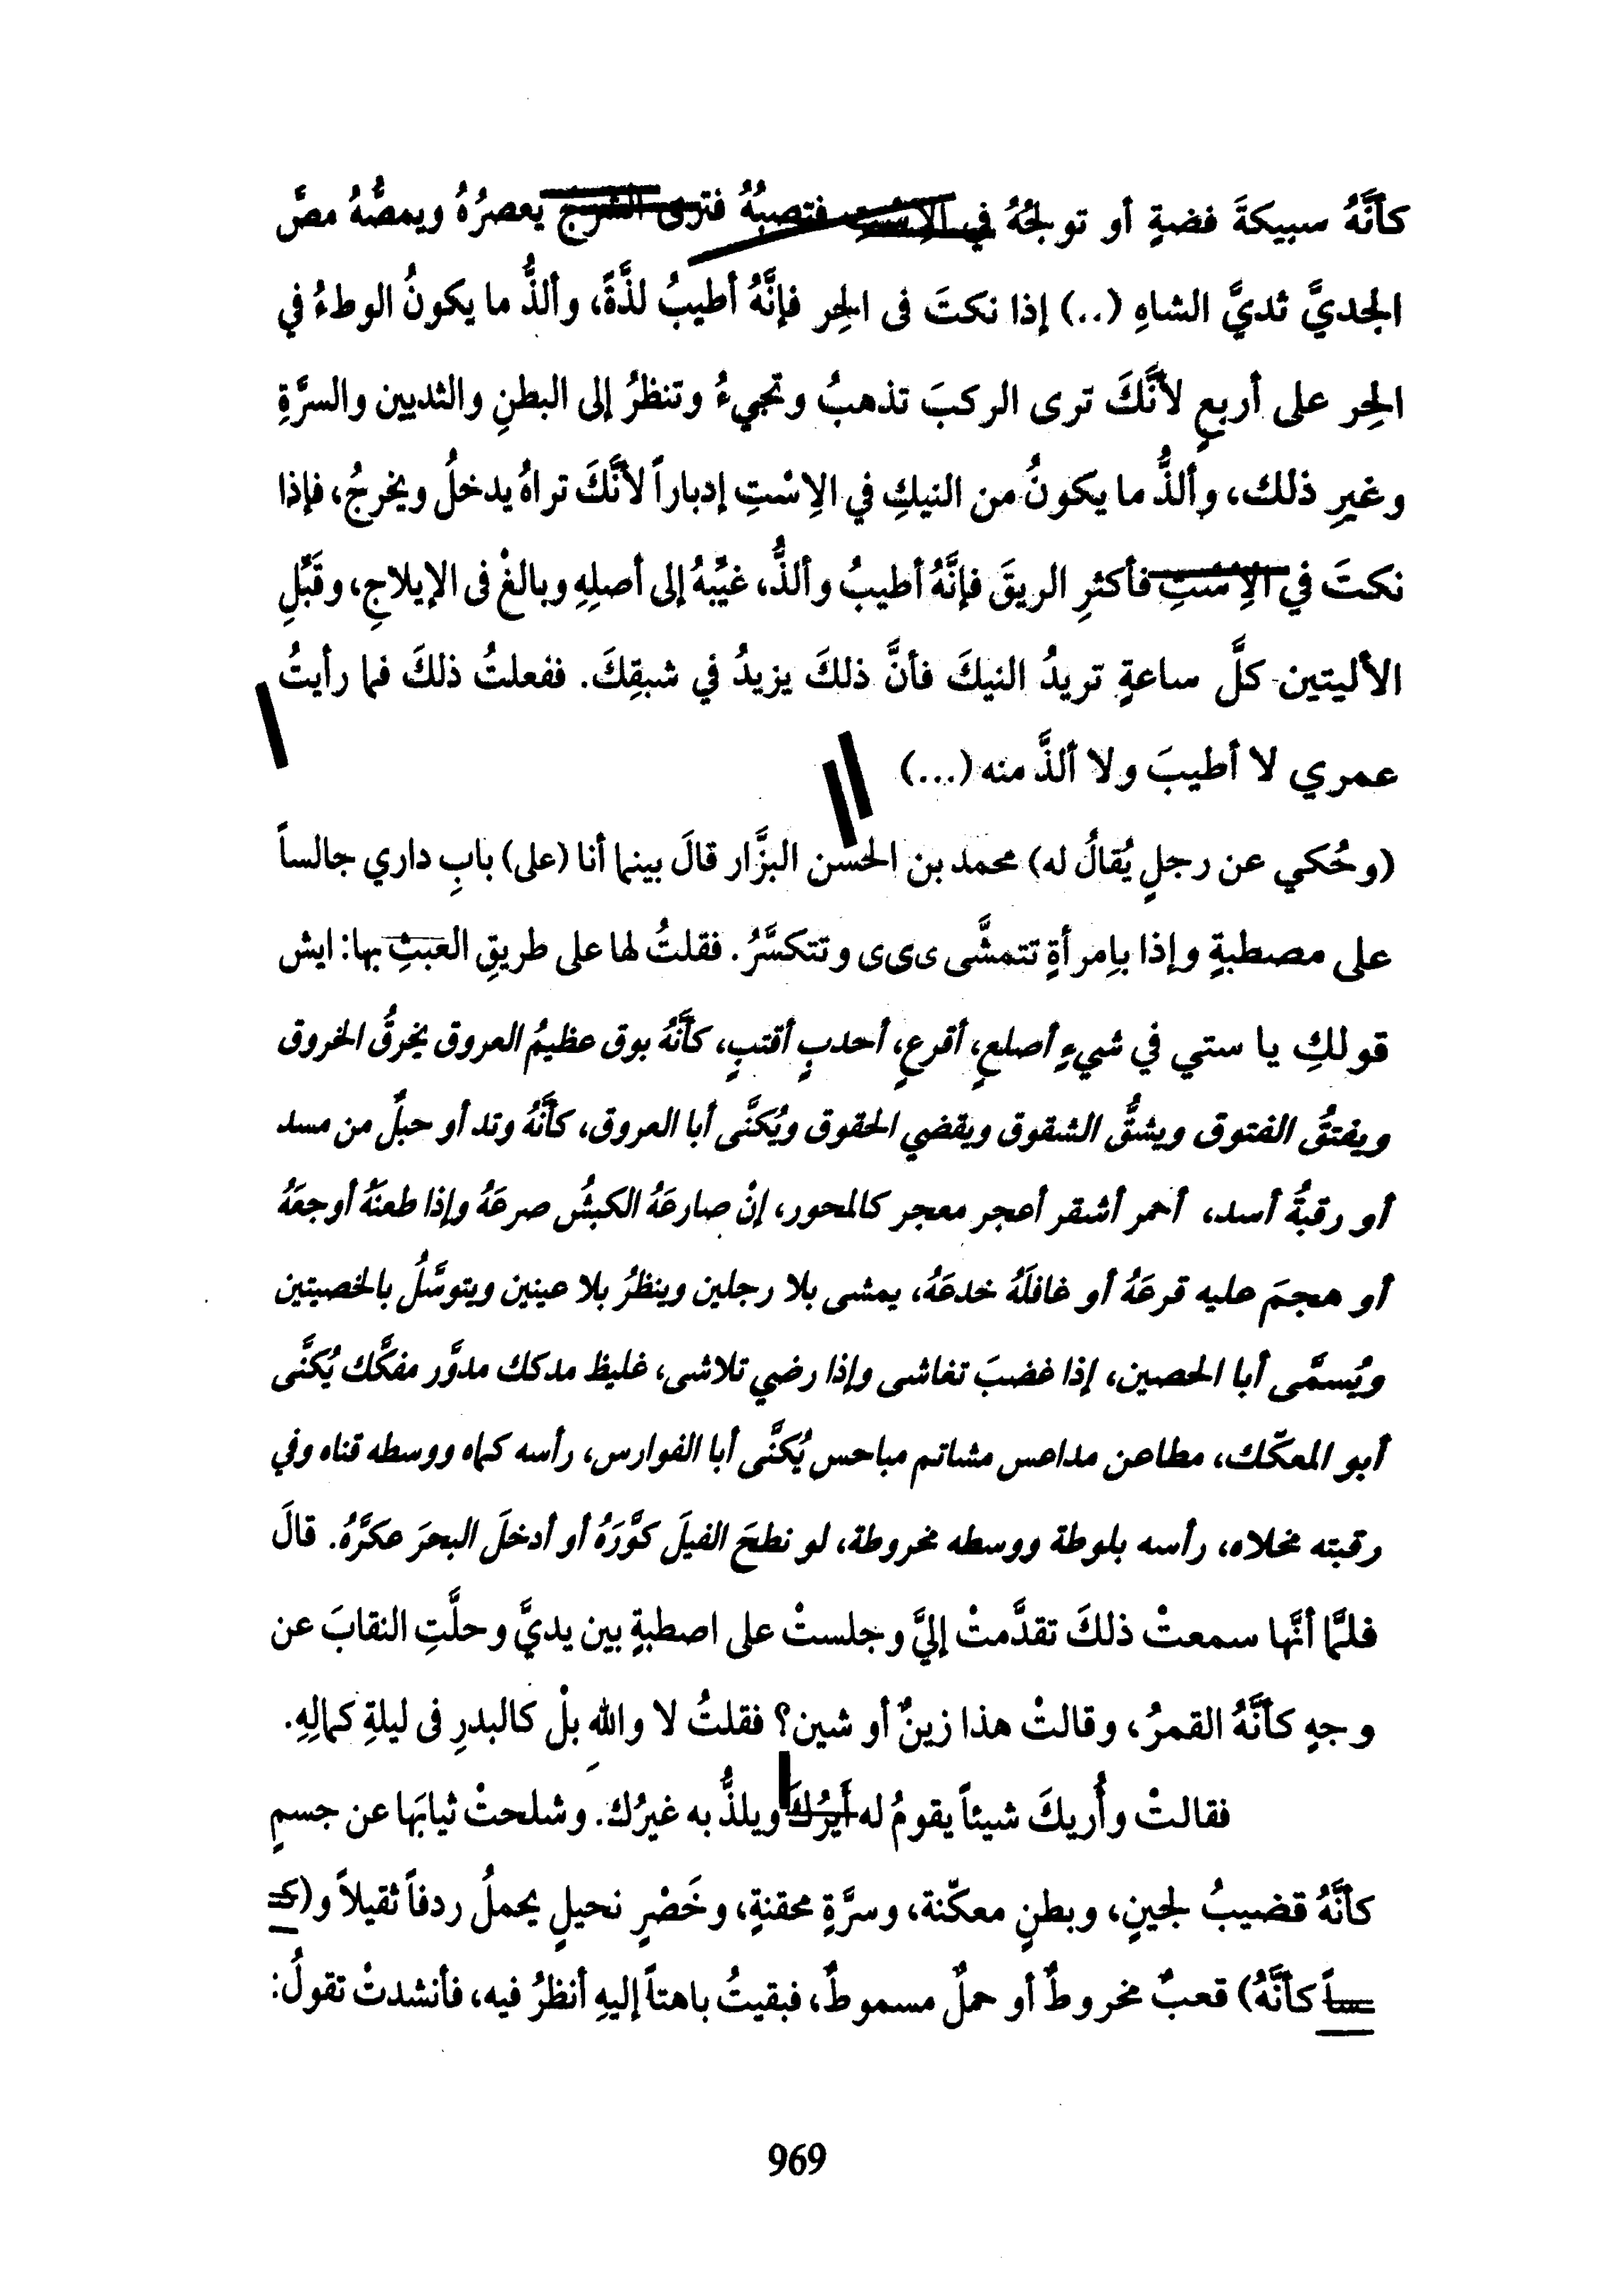 كأنَّهُ سبيكةَ فضةٍ أو تولجُهُ في الإسْتِ فتصبُهُ فترى الشرج يعصرُهُ ويمصُّهُ مصَّ
الجديَّ ثديَّ الشاهِ (..) إذا نكتَ فى الحِر فإنَّهُ أطيبُ لذَّةً، وألذُّ ما يكونُ الوطءُ في
الحِر على أربعٍ لأنَّكَ ترى الركبَ تذهبُ وتجيءُ وتنظرُ إلى البطنِ والثديين والسرَّةِ
وغيرِ ذلك، وألذُّ ما يكونُ من النيكِ في الإسْتِ إدباراً لأنَّكَ تراهُ يدخلُ ويخرجُ، فإذا
نكتَ في الإسْتِ فأكثرِ الريقَ فإنَّهُ أطيبُ وألذُّ، غيّبهُ إلى أصلِهِ وبالغْ فى الإيلاجِ، وقَبِّلِ
الأليتين كلَّ ساعةٍ تريدُ النيكَ فأنَّ ذلكَ يزيدُ في شبقِكَ. ففعلتُ ذلكَ فما رأيتُ
عمري لا أطيبَ ولا ألذَّ منه (...)
(وحُكي عن رجلٍ يُقالُ له) محمد بن الحسن البزَّار قالَ بينما أنا (على) بابِ داري جالساً
على مصطبةٍ وإذا بإمرأةٍ تتمشَّى ىىى وتتكسَّرُ. فقلتُ لها على طريقِ العبثِ بها: ايش
قولكِ يا ستي في شيءٍ أصلعٍ، أقرعٍ، أحدبٍ أقتبٍ، كأنَّهُ بوق عظيمُ العروق يخرقُ الخروق
ويفتقُ الفتوق ويشقُّ الشقوق ويقضي الحقوق ويُكنَّى أبا العروق، كأنَّهُ وتد أو حبلٌ من مسد
أو رقبةُ أسد، أحمر أشقر أعجر معجر كالمحور، إنْ صارعَهُ الكبشُ صرعَهُ وإذا طعنَهُ أوجعَهُ
أو هجمَ عليه قرعَهُ أو غافلَهُ خدعَهُ، يمشى بلا رجلين وينظرُ بلا عينين ويتوسَّلُ بالخصيتين
ويُسمَّى أبا الحصين، إذا غضبَ تغاشى وإذا رضي تلاشى، غليظ مدكك مدوَّر مفكَّك يُكنَّى
أبو المعكّك، مطاعن مداعس مشاتم مباحس يُكنَّى أبا الفوارس، رأسه كماه ووسطه قناه وفي
رقبته مخلاه، رأسه بلوطة ووسطه مخروطة، لو نطحَ الفيلَ كوَّرَهُ أو أدخلَ البحرَ عكرَّهُ. قالَ
فلمَّا أنَّها سمعتْ ذلكَ تقدَّمتْ إليَّ وجلستْ على اصطبةٍ بين يديَّ وحلَّتِ النقابَ عن
وجهٍ كأنَّهُ القمرُ، وقالتْ هذا زينٌ أو شين؟ فقلتُ لا واللهِ بلْ كالبدرِ فى ليلةِ كمالِهِ.
فقالتْ وأُريكَ شيئاً يقومُ له أَيرُكَ ويلذُّ به غيرُك. وشلحتْ ثيابَها عن جسمٍ
كأنَّهُ قضيبُ لجينٍ، وبطنٍ معكّنة، وسرَّةٍ محقنةٍ، وخَصْرٍ نحيلٍ يحملُ ردفاً ثقيلاً و(كـ
ـساً كأنَّهُ) قعبٌ مخروطٌ أو حملٌ مسموطٌ، فبقيتُ باهتاً إليهِ أنظرُ فيه، فأنشدتْ تقولُ:
969